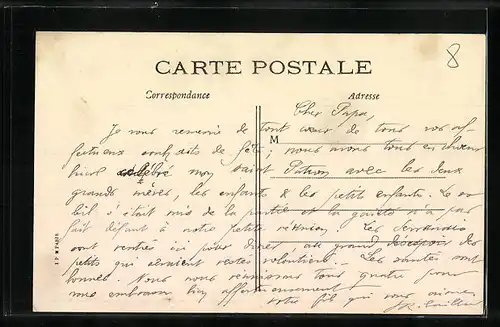 8
CARTE POSTALE
Correspondance
Adresse
M
Cher Papa,
Je vous remercie de tout cœur de tous vos af-
fectueux souhaits de fête; nous avons tous en chœur
hier célébré mon saint Patron avec les deux
grands mères, les enfants & les petits enfants. Le so
leil s'était mis de la partie et la gaieté n'a pas
fait défaut à notre petite réunion. Les
sont rentrés ici pour dîner, au grand désespoir des
petits qui seraient restés volontiers. Les santés sont
bonnes. Nous nous réunissons tous quatre pour
vous embrasser bien affectueusement
votre fils qui vous aime